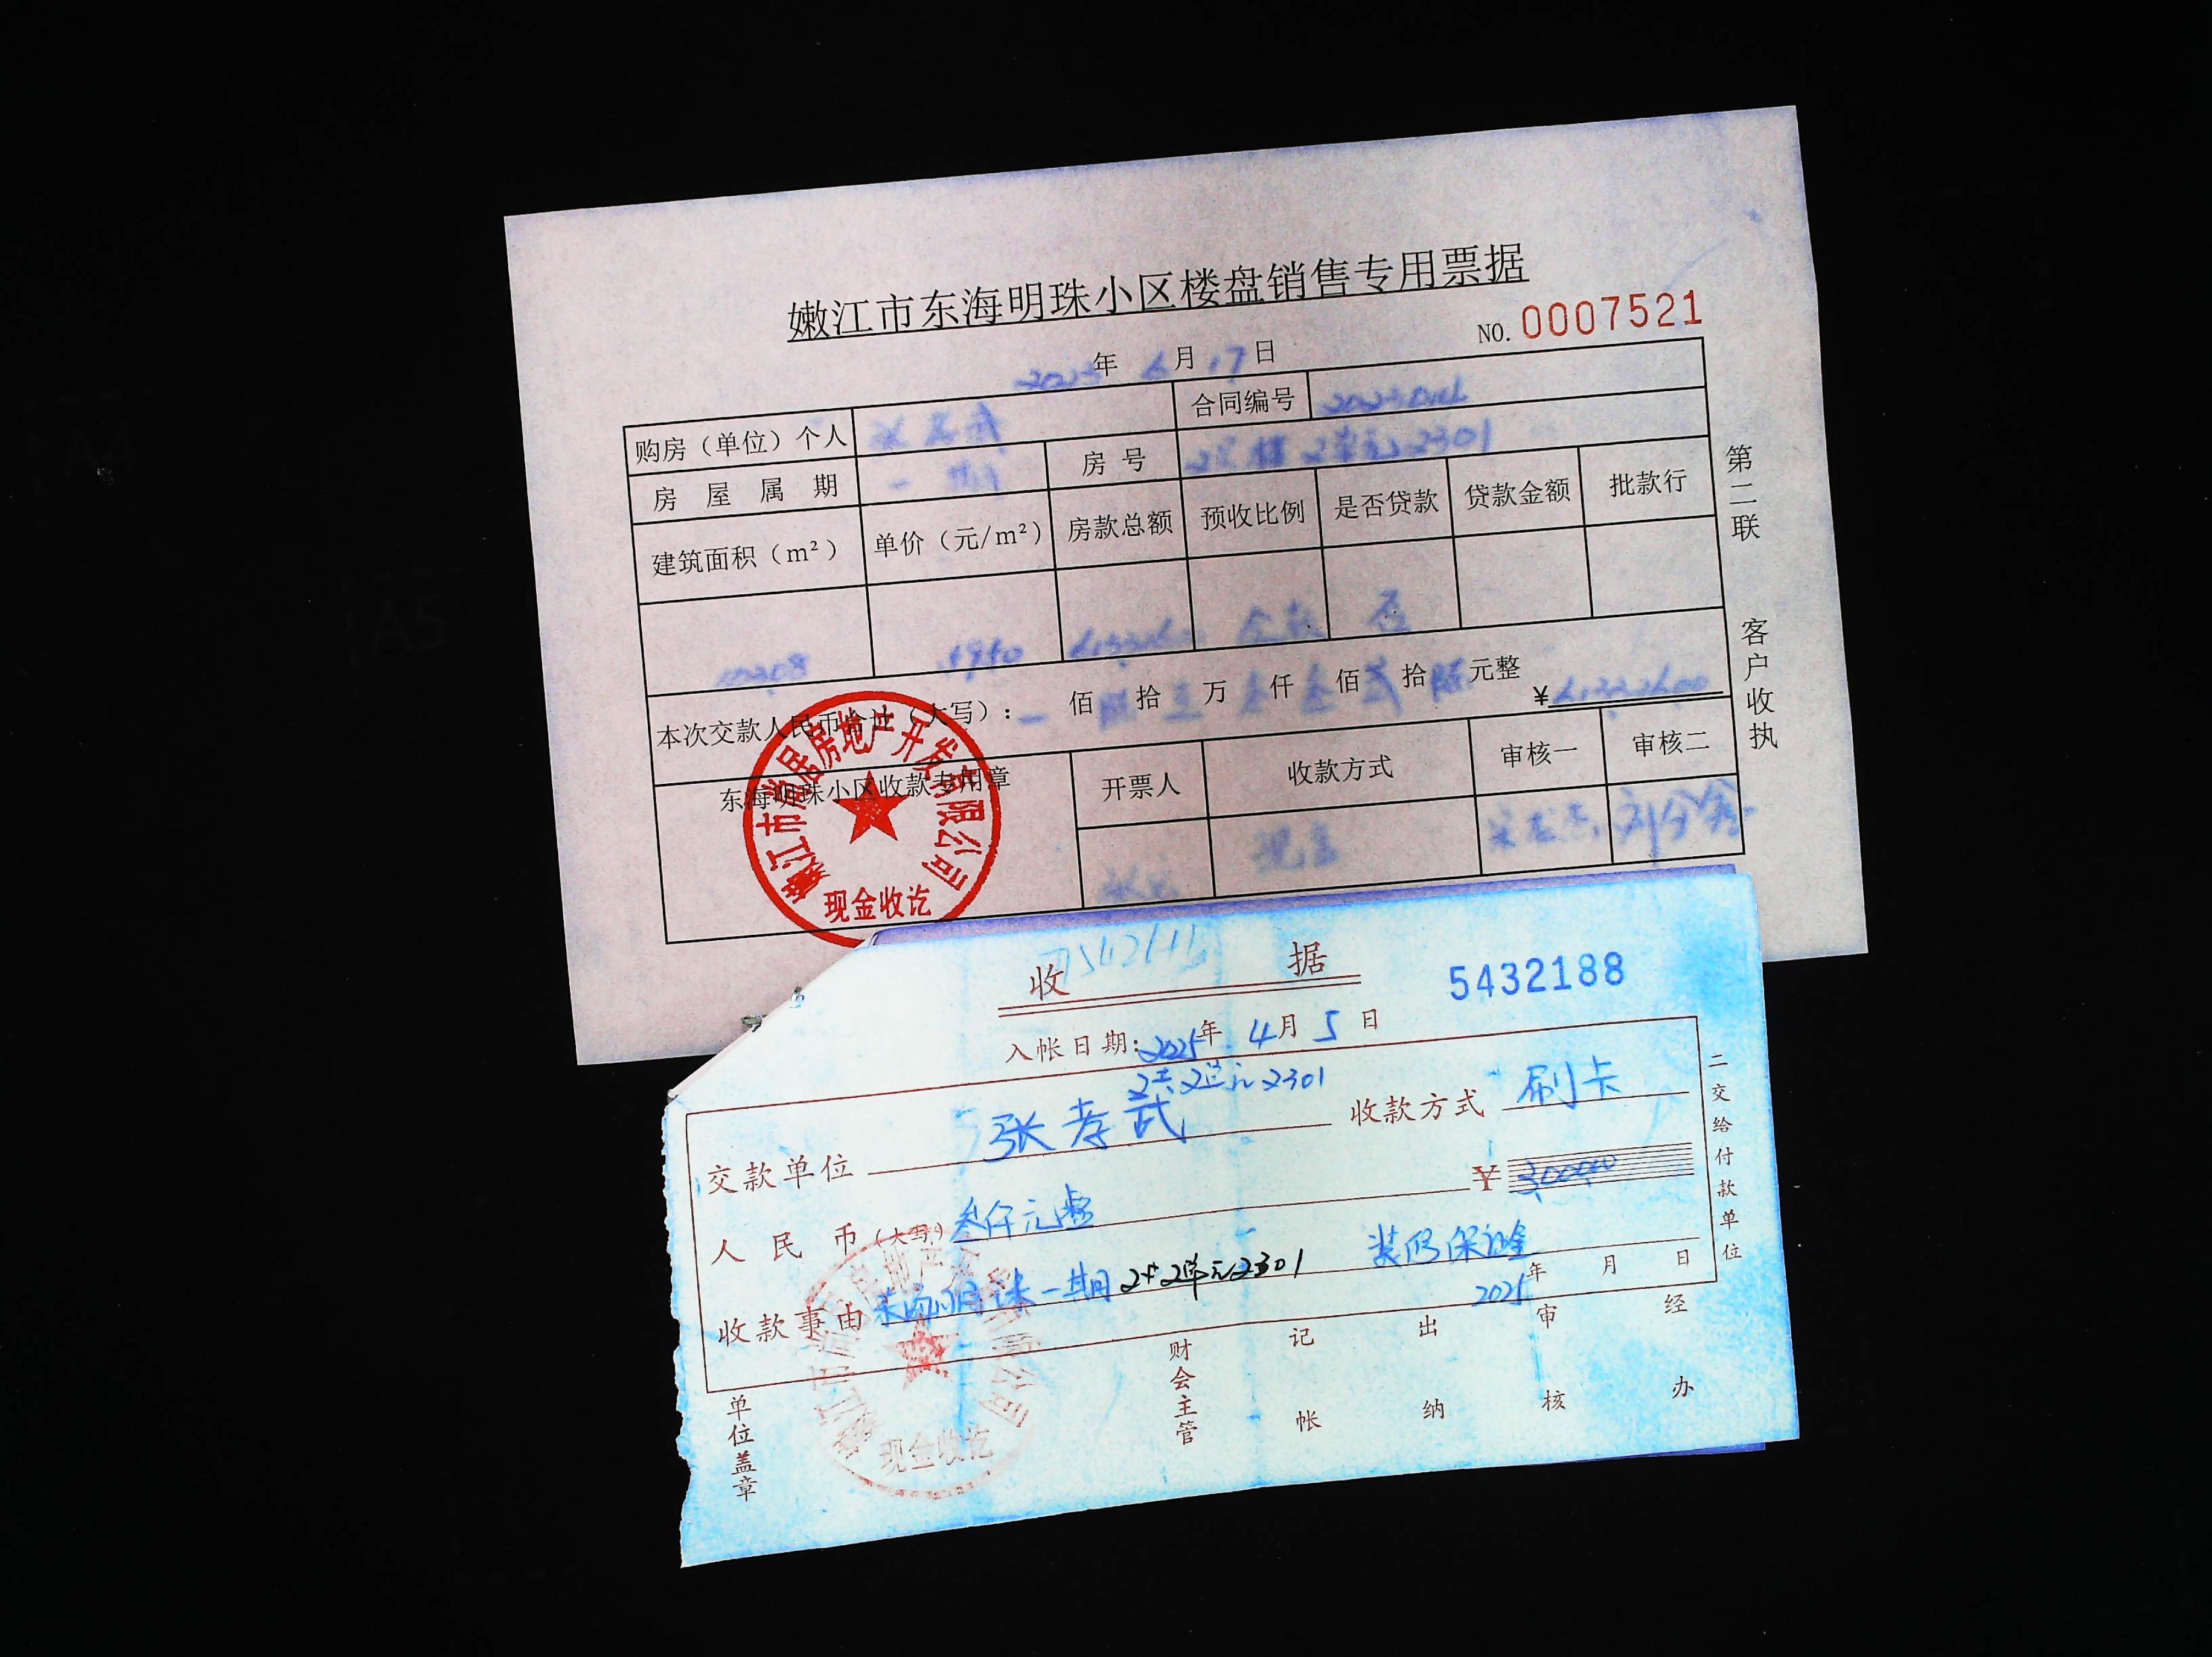 嫩江市东海明珠小区楼盘销售专用票据
NO. 0007521
年 6月17日
购房（单位）个人 合同编号
房屋属期 一期 房号 2#楼2单元2301
建筑面积（m²） 单价（元/m²） 房款总额 预收比例 是否贷款 贷款金额 批款行
全款 否
本次交款人民币合计（大写）： 佰 陆拾 万 叁仟 叁佰 贰拾 陆元整 ¥
东海明珠小区收款专用章 开票人 收款方式 审核一 审核二
现金
嫩江市尚居房地产开发有限公司
现金收讫
第二联 客户收执
收据 5432188
入帐日期：2025年4月5日
2#2单元2301
交款单位 张孝武 收款方式 刷卡
人民币（大写） 叁仟元整 ¥ 3000.00
收款事由 东海明珠一期2#2单元2301 装修保证金
2025年 月 日
单位盖章 财会主管 记帐 出纳 审核 经办
现金收讫
二交给付款单位